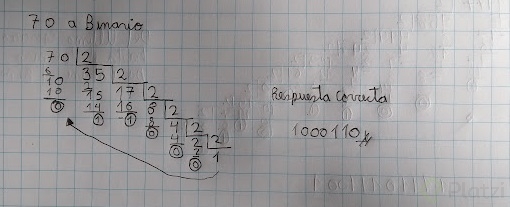 70 a Binario
70 2
6 35 2
10 3 17 2
10 15 16 8 2
0 14 1 8 4 2
1 0 4 2 2
0 2 1
0
Respuesta correcta
1000110
Platzi